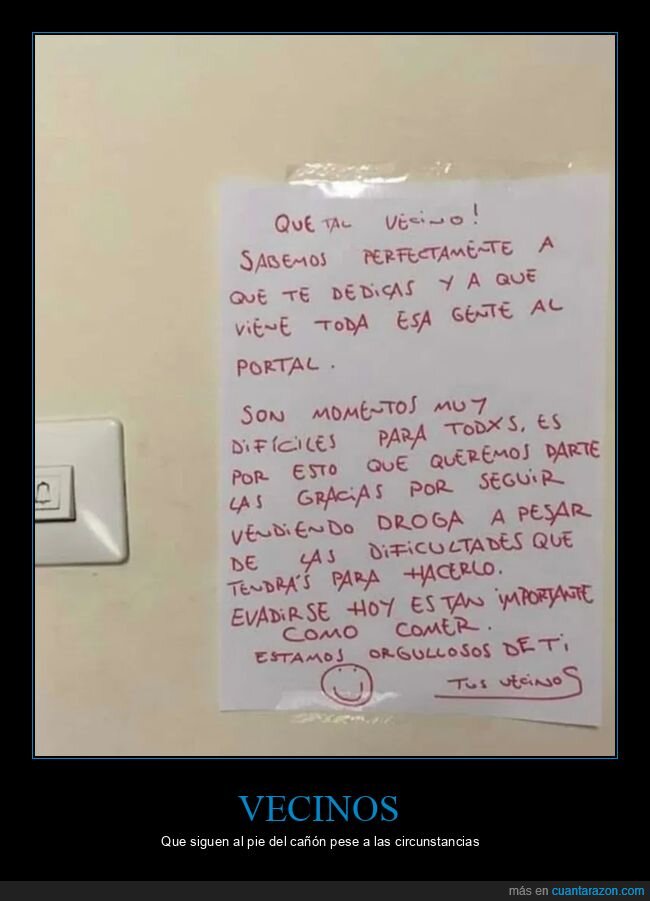 QUE TAL VECINO!
SABEMOS PERFECTAMENTE A
QUE TE DEDICAS Y A QUE
VIENE TODA ESA GENTE AL
PORTAL.
SON MOMENTOS MUY
DIFÍCILES PARA TODXS, ES
POR ESTO QUE QUEREMOS DARTE
LAS GRACIAS POR SEGUIR
VENDIENDO DROGA A PESAR
DE LAS DIFICULTADES QUE
TENDRÁS PARA HACERLO.
EVADIRSE HOY ES TAN IMPORTANTE
COMO COMER.
ESTAMOS ORGULLOSOS DE TI
TUS VECINOS
VECINOS
Que siguen al pie del cañón pese a las circunstancias
más en cuantarazon.com